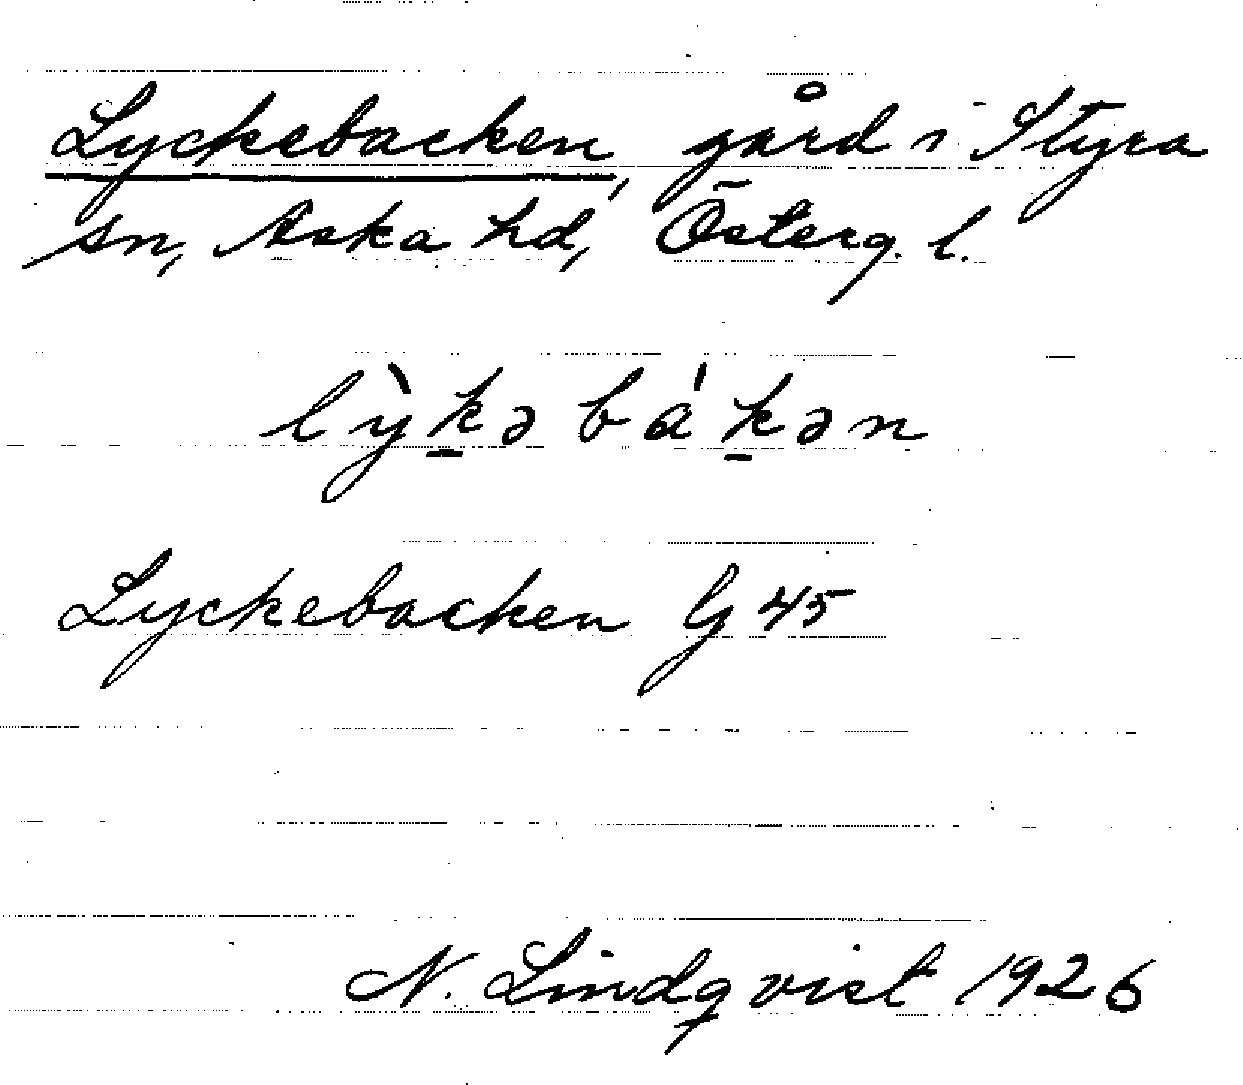 Lyckebacken, gård i Styra
sn, Aska hd, Österg. l.
lỳk̲əbákə̲n
Lyckebacken G 45
N. Lindqvist 1926